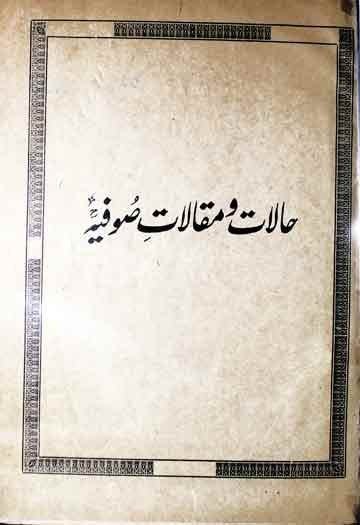 حالات و مقالاتِ صُوفیہؒ